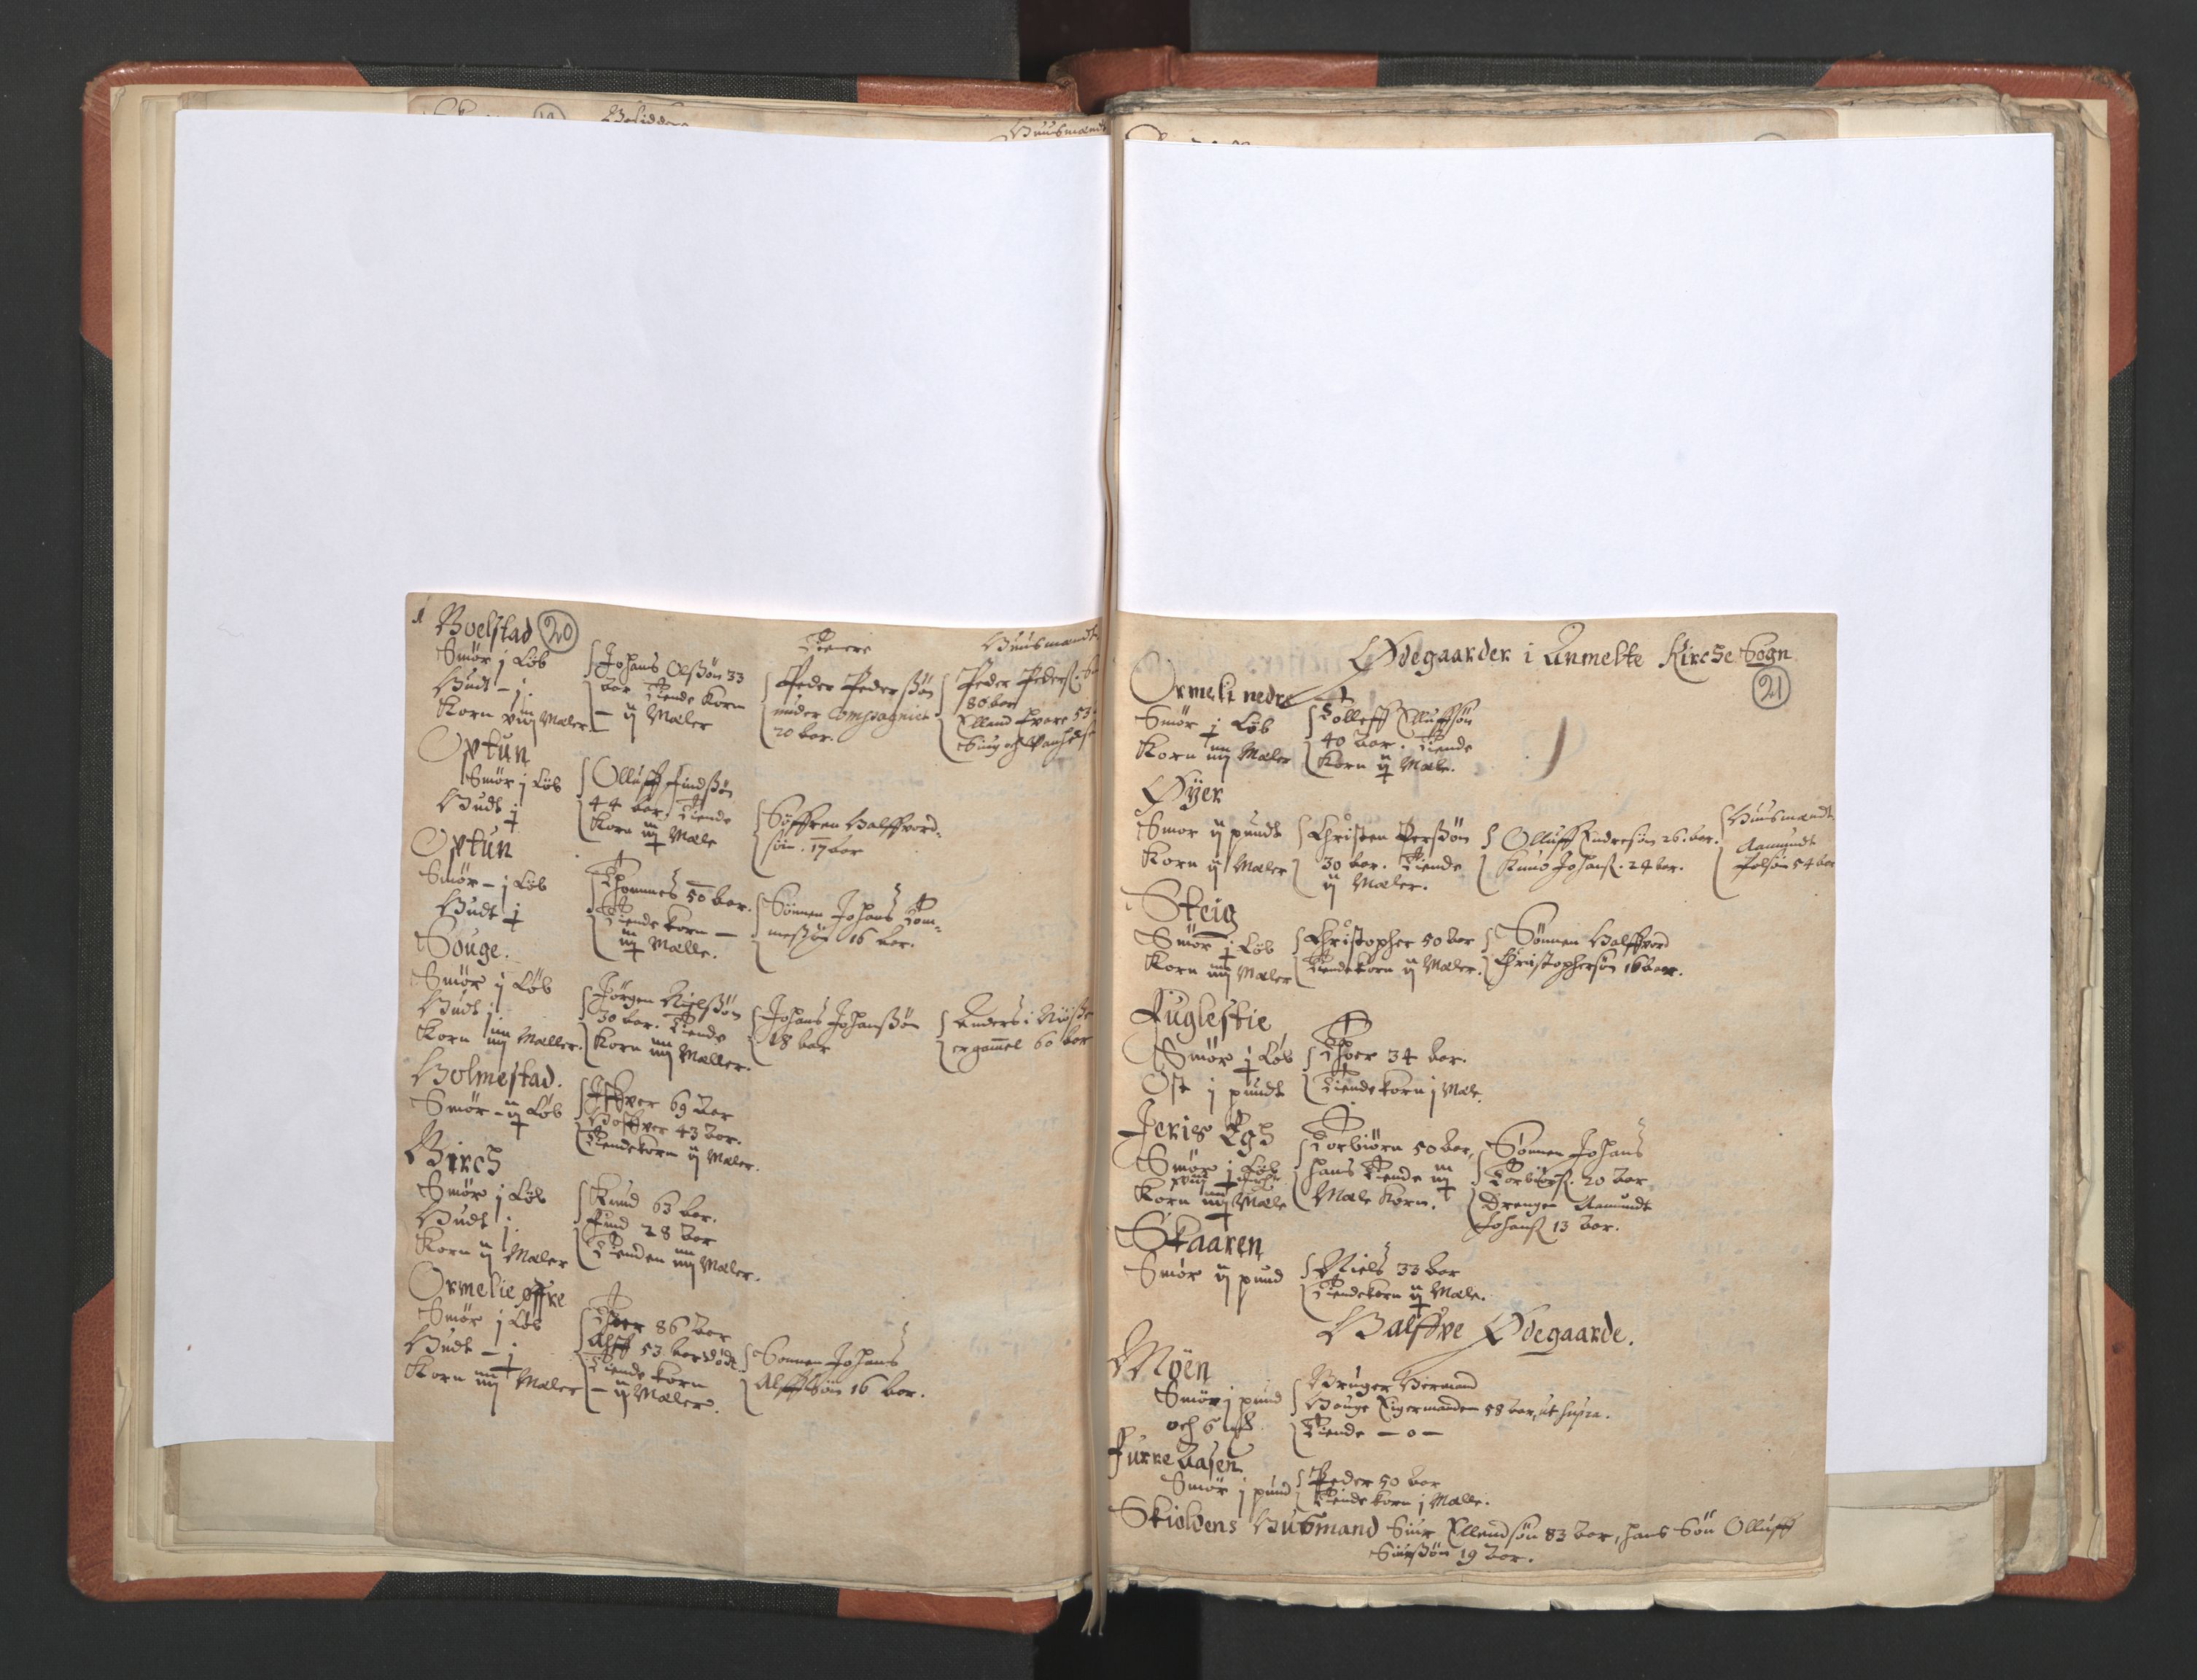 Huusmænd
Boelstad 20
Tienere
Huusmænd
Smør j Løb
Hudt - j.
Korn viij Mæler
Johans Olssøn 33
aar Tiende Korn
- ij Mæler
Peder Pederssøn
under Compagniet
20 aar.
Peder Peders.
80 aar
Elland 53
Optun
Smør j Løb
Hudt j
Olluff Findssøn
44 aar. Tiende
Korn iij Mæle
Søffren Halffvord-
søn. 17 aar
Optun
Smør - j Løb
Hudt j
Thommes 50 aar.
Tiende Korn -
iij Mælle.
Sønnen Johans Tom-
messøn 16 aar.
Souge.
Smør ij Løb
Hudt j
Korn iiij Mæller.
Jørgen Nielssøn
30 aar. Tiende
Korn iiij Mæller.
Johans Johanssøn
18 aar
Anders i
er gammel 60 aar
Holmestad.
Smør - ij Løb
Iffver 69 aar
43 aar.
Tiendekorn ij Mæler.
Birch
Smør j Løb
Hudt j.
Korn ij Mæler
Knud 63 aar.
Find 28 aar
Tienden iiij Mæler.
Ormelie øffre
Smør j Løb
Hudt - j
Korn iiij Mæler
Thoer 86 aar
Alff 53 aar
Tiende Korn
- ij Mæler.
Sønnen Johans
Alffssøn 16 aar.
Ødegaarder i Urnelte Kirche Sogn
21
Ormeli nedre
Smør j Løb
Korn iiij Mæler
Tolleff Elluffsøn
40 aar. Tiende
Korn ij Mæle.
Øyer
Smør ij pundt
Korn ij Mæler
Christen Perssøn
30 aar. Tiende
ij Mæler.
Olluff Endresøn 26. aar.
Knud Johans. 24 aar.
Huusmændt.
Aamundt
Polsøn 54 aar
Steig
Smør j Løb
Korn iiij Mæler
Christopher 50 aar
Tiendekorn ij Mæler.
Sønnen Halffvord
Christophersøn 16 aar.
Fuglestie
Smør j Løb
Ost j pundt
Thoer 34 aar.
Tiendekorn j Mæle.
Jeris Egh
Smør j Løb
Korn iiij Mæle
Torbiørn 50 aar,
hans Tiende iij
Mæle Korn.
Sønnen Johans
Torbiørs. 20 aar
Drengen Aamundt
Johans. 13 aar.
Skaaren
Smør ij pund
Niels 33 aar
Tiendekorn ij Mæle.
Halffve Ødegaarde.
Moen
Smør j pund
och 6
Bruger
Hauge 58 aar, ut supra.
Tiende - o -
Furre Aasen
Smør j pund
Peder 50 aar
Tiende korn j Mælle.
Skioldens Husmand Siur Ellendsøn 83 aar, hans Søn Olluff
Siurssøn 19 aar.